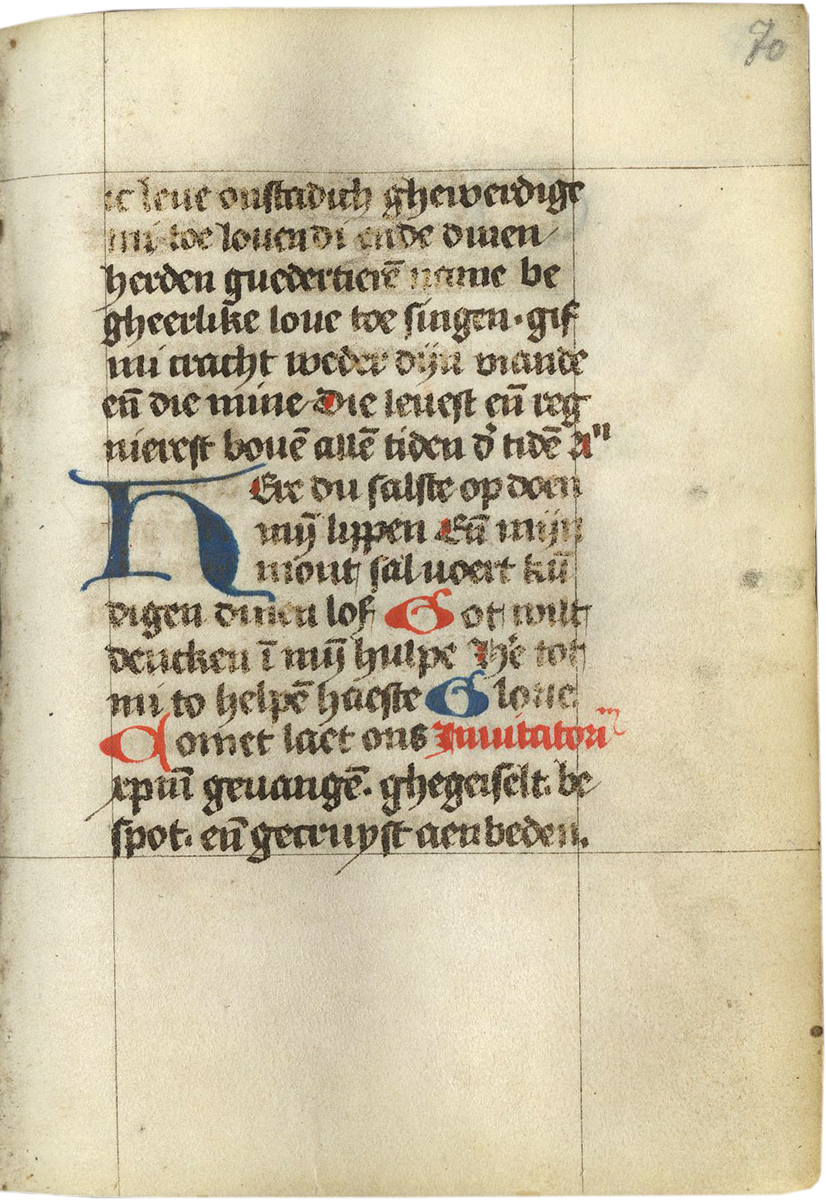 70
ic leue onstadich ghewerdige
mi toe louen di ende dinen
herden guedertierē name be
gheerlike loue toe singen · gif
mi cracht weder dijn viande
en̄ die mine Die leuest en̄ reg
nierest bouē allē tiden d' tidē
Ere du salste op doen
mȳ lippen En̄ mijn
mont sal voert kū
digen dinen lof Got wilt
dencken ī mȳ hulpe He tot
mi to helpē haeste Gloue
Comet laet ons Inuitatoriᵐ
xpm̄ geuangē. ghegeiselt. be
spot. en̄ gecruyst aenbeden.